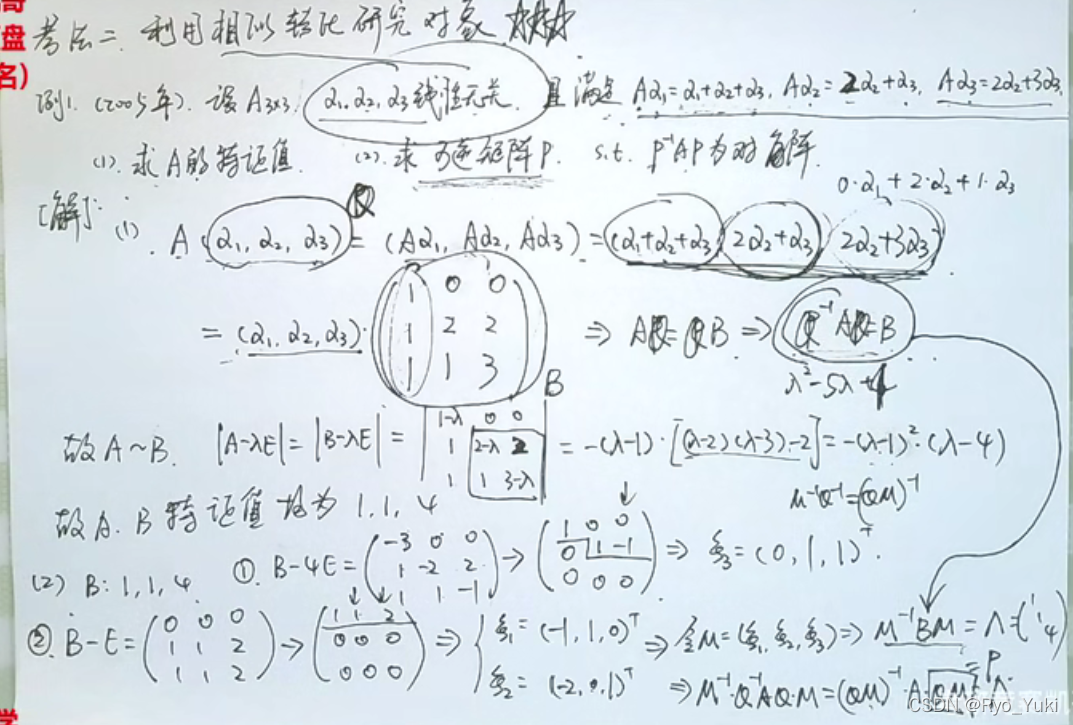 考法二. 利用相似转化研究对象 ☆☆☆
例1. (2005年). 设A₃ₓ₃. α₁, α₂, α₃线性无关. 且满足 Aα₁=α₁+α₂+α₃, Aα₂=2α₂+α₃, Aα₃=2α₂+3α₃.
(1). 求A的特征值. (2). 求可逆矩阵P. s.t. P⁻¹AP为对角阵.
0·α₁+2·α₂+1·α₃
[解]: (1). A(α₁, α₂, α₃) = (Aα₁, Aα₂, Aα₃) = (α₁+α₂+α₃, 2α₂+α₃, 2α₂+3α₃)
Q
1 0 0
= (α₁, α₂, α₃)· 1 2 2 ⇒ AQ=QB ⇒ Q⁻¹AQ=B
1 1 3 B
λ²-5λ+4
故A~B. |A-λE|=|B-λE|= | 1-λ 0 0 | 1 2-λ 2 | 1 1 3-λ | = -(λ-1)·[(λ-2)(λ-3)-2]=-(λ-1)²·(λ-4)
故A.B特征值均为1,1,4
M⁻¹Q⁻¹=(QM)⁻¹
(2) B: 1,1,4. ①. B-4E= (-3 0 0 | 1 -2 2 | 1 1 -1) → (1 0 0 | 0 1 -1 | 0 0 0) ⇒ ξ₃=(0,1,1)ᵀ.
②. B-E= (0 0 0 | 1 1 2 | 1 1 2) → (1 1 2 | 0 0 0 | 0 0 0) ⇒ { ξ₁=(-1,1,0)ᵀ ⇒ 令M=(ξ₁,ξ₂,ξ₃) ⇒ M⁻¹BM=Λ=(1 1 4)
ξ₂=(-2,0,1)ᵀ ⇒ M⁻¹·Q⁻¹AQ·M=(QM)⁻¹·A·QM=Λ
=P
CSDN @Ryo_Yuki